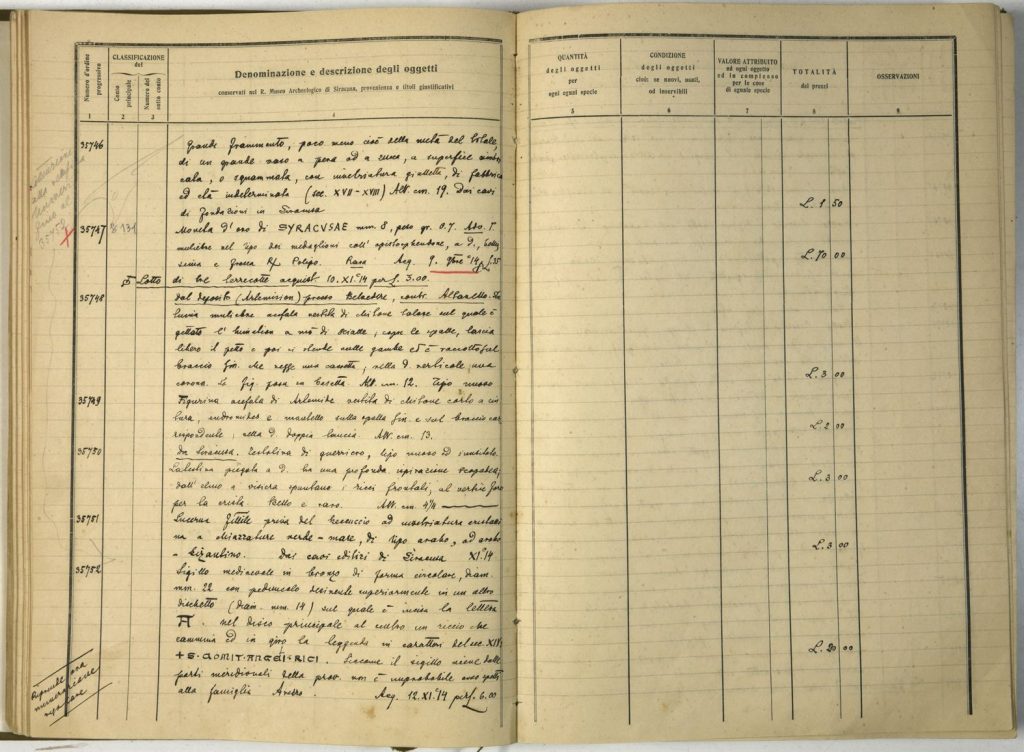 Numero d'ordine progressivo
CLASSIFICAZIONE
del
Conto principale
Numero del sotto conto
Denominazione e descrizione degli oggetti
conservati nel R. Museo Archeologico di Siracusa, provenienza e titoli giustificativi
1 2 3 4
35746 Grande frammento, poco meno cioè della metà del totale,
di un grande vaso a pera od a zucca, a superficie
o squammata, con invetriatura gialletta, di fabbrica
ed età indeterminata (sec. XVII-XVIII) Alt. cm. 19. Dai cavi
di fondazioni in Siracusa
35747 Moneta d'oro di SYRACVSAE mm. 8, peso gr. 0.7. Ado. T.
muliebre nel tipo dei medaglioni coll' opistosphendone, a d.,
e Rx Polipo. Rara Acq. 9. 14 £. 35
Lotto di tre terrecotte acquist. 10.XI.14 per £. 3.00.
35748 dal deposito (Artemision) presso Belvedere, contr.
muliebre acefala vestita di chitone talare sul quale è
gettato l' himation a mò di scialle, copre le spalle, lascia
libero il petto e poi si stende sulle gambe ed è raccolto sul
braccio sin. che regge una cassetta; nella d. verticale una
corona. La fig. posa su basetta. Alt. cm. 12. Tipo nuovo
35749 Figurina acefala di Artemide vestita di chitone corto a cin
tura, endromides e mantello sulla spalla sin. e sul braccio cor
rispondente; nella d. doppia lancia. Alt. cm. 13.
35750 da Siracusa. Testolina di guerriero, tipo nuovo ed inusitato.
La testina piegata a d. ha una profonda ispirazione scopadea;
dall' elmo a visiera spuntano i ricci frontali, al vertice foro
per la cresta. Bello e raro. Alt. cm. 4½
35751 Lucerna fittile priva del beccuccio ad invetriatura
na a chiazzature verde-mare, di tipo arabo, od arabo
- bizantino. Dai cavi edilizi di Siracusa XI.14
35752 Sigillo medioevale in bronzo di forma circolare, diam.
mm. 22 con peduncolo desinente superiormente in un altro
dischetto (diam. mm. 14) sul quale è incisa la lettera
A. nel disco principale al centro un riccio che
cammina ed in giro la leggenda in caratteri del sec. XIV
+ S. COMIT. ANGEI. RICI. Siccome il sigillo viene dalle
parti meridionali della prov. non è improbabile esso spetti
alla famiglia Acq. 12.XI.14 per £. 6.00
Riprende ora
numerazione
QUANTITÀ
degli oggetti
per
ogni ogni specie
CONDIZIONE
degli oggetti
cioè: se nuovi, usati,
od inservibili
VALORE ATTRIBUITO
ad ogni oggetto
ed in complesso
per le cose
di eguale specie
TOTALITÀ
dei prezzi
OSSERVAZIONI
5 6 7 8 9
L. 1 50
L. 70 00
L. 3 00
L. 2 00
L. 3 00
L. 3 00
L. 20 00